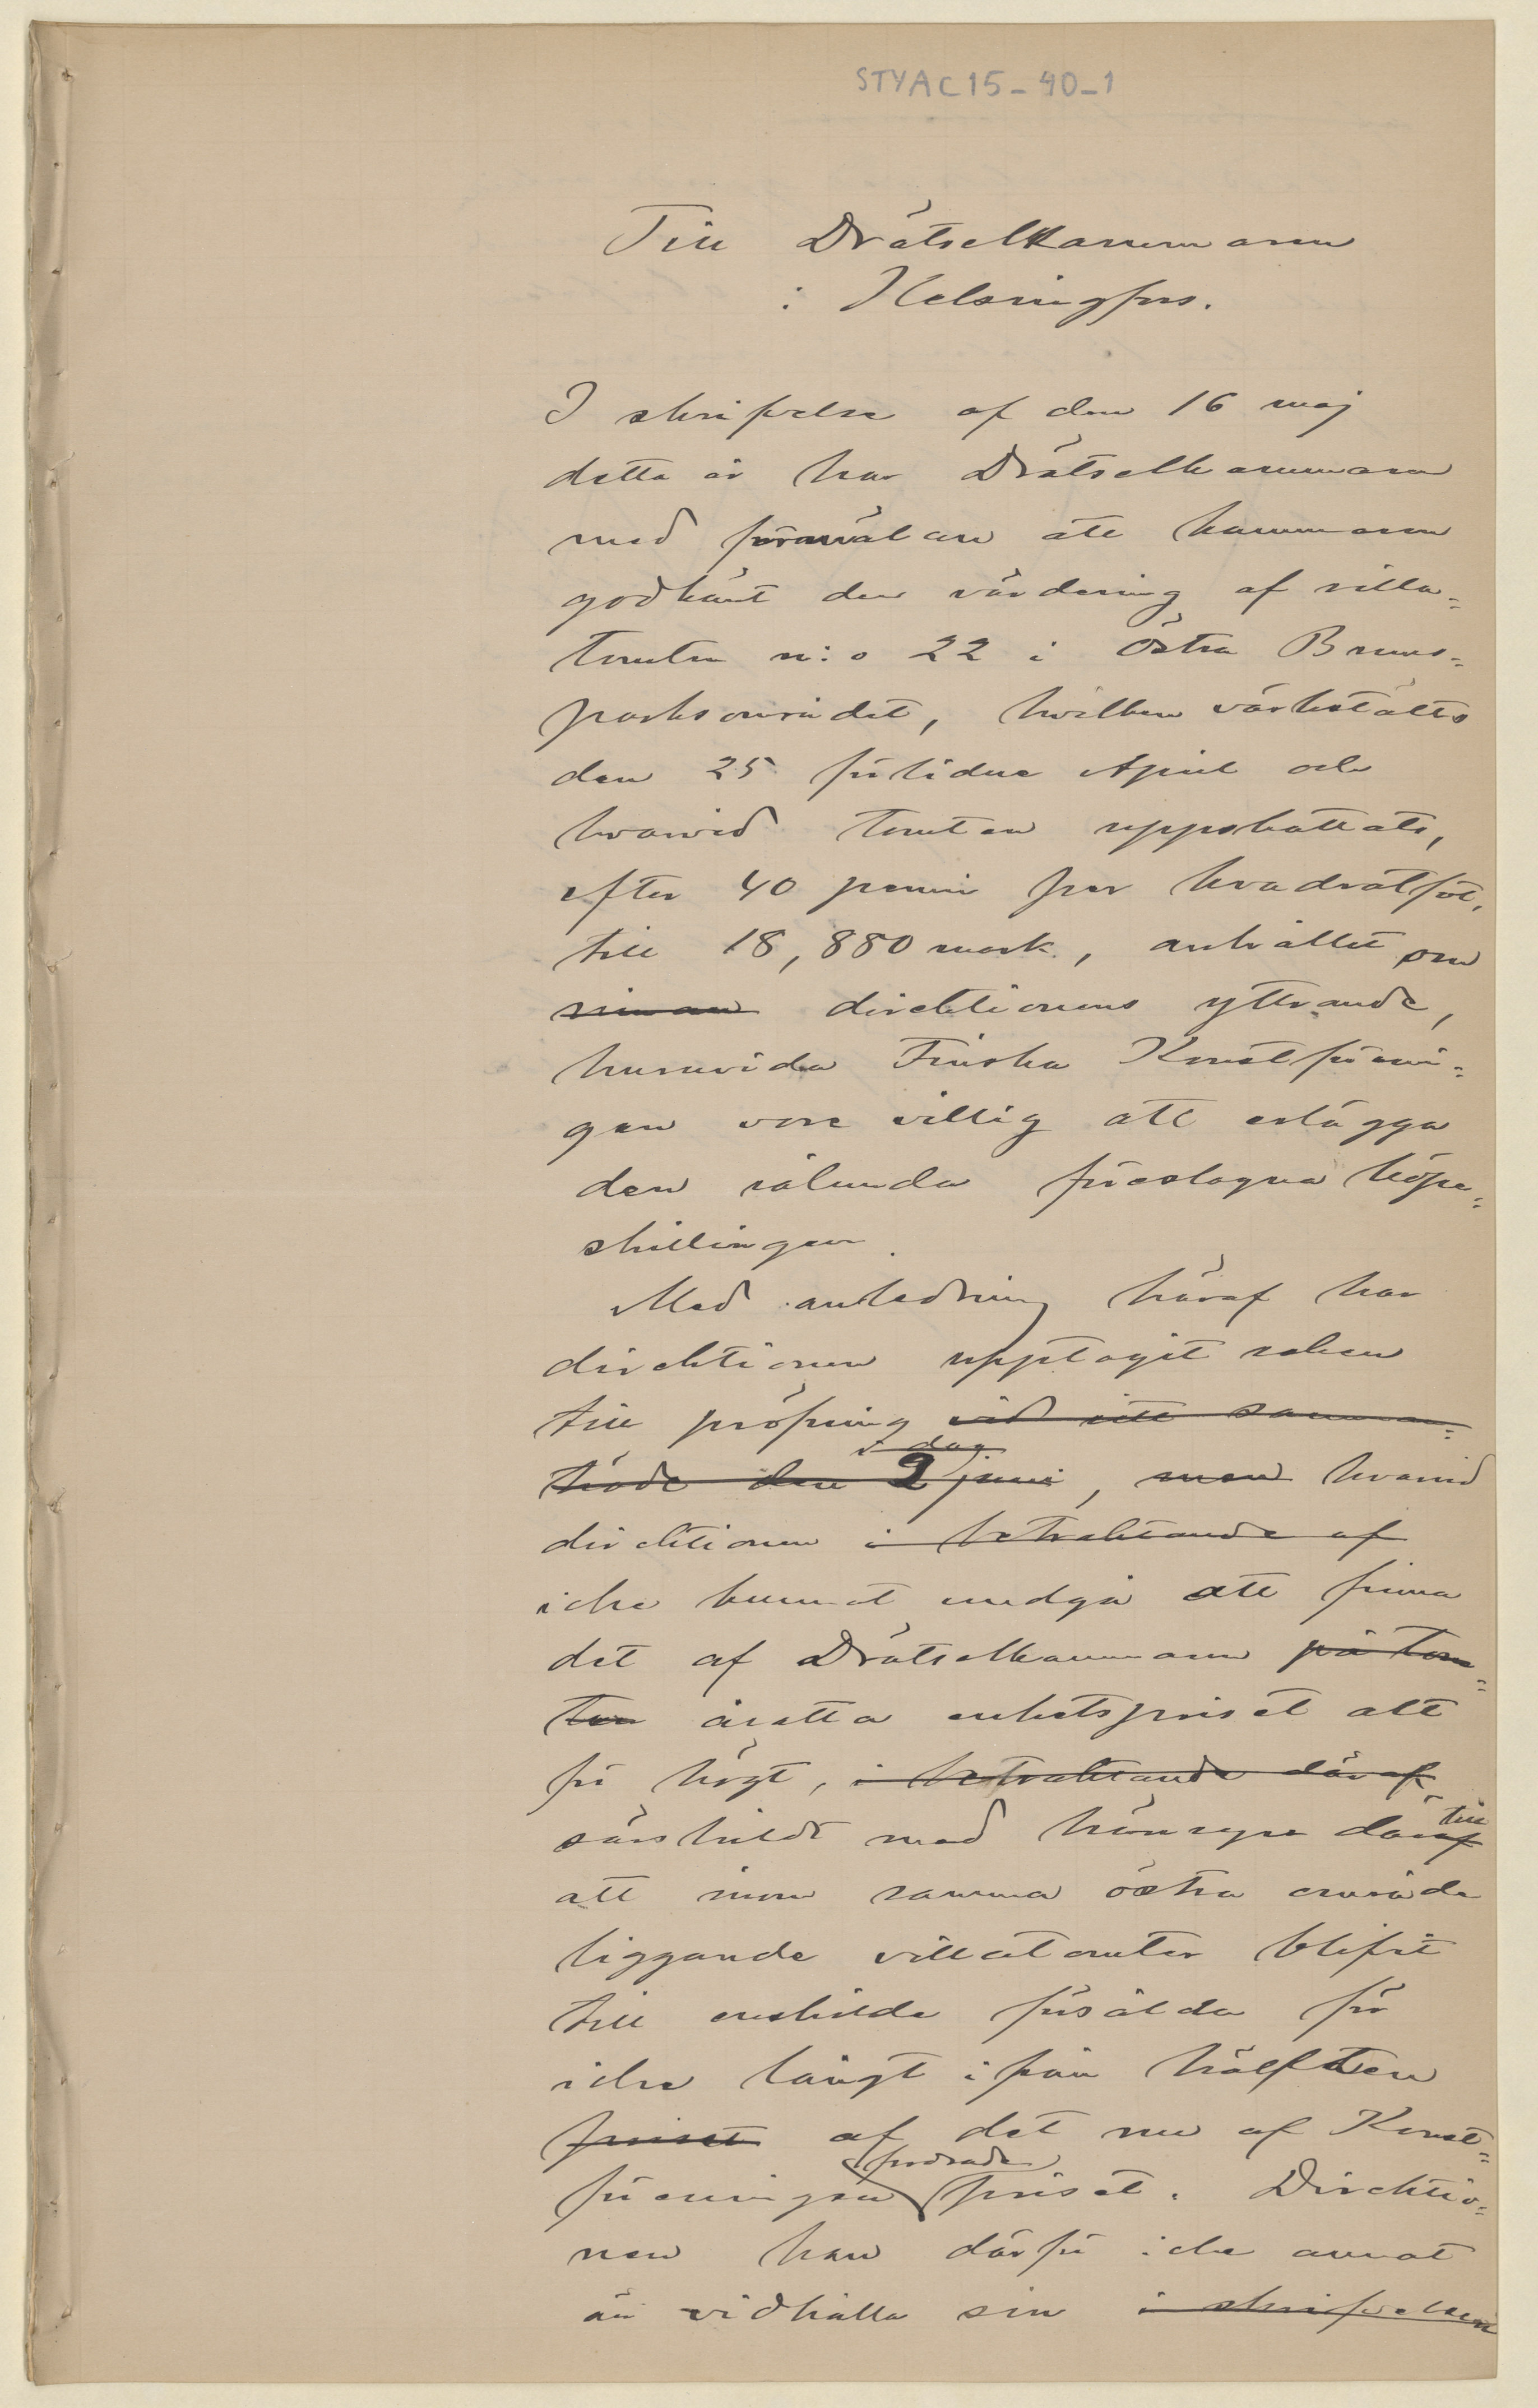 STYAC15-40-1
Till Drätselkammaren
i Helsingfors.
I skrifvelse af den 16 maj
detta år har Drätselkammaren
med förmälan att kammaren
godkänt den värdering af villa-
tomten n:o 22 i Östra Bruns-
parksområdet, hvilken värkstälts
den 25 förlidne April och
hvarvid tomten uppskattats,
efter 40 penni per kvadratfot,
till 18,880 mark, anhållit om
sin an direktionens yttrande,
huruvida Finska Konstförenin-
gen vore villig att erlägga
den sålunda föreslagna köpe-
skillingen.
Med anledning häraf har
direktionen upptagit saken
till pröfning vid ett samman-
i dag
träde den 2 juni, men hvarvid
direktionen i betraktande af
icke kunnat undgå att finna
det af Drätselkammaren på tom-
ten åsatta enhetspriset allt
för högt, i betraktande däraf
till
särskildt med hänsyn däraf
att inom samma östra område
liggande villatomter blifvit
till enskilde försålda för
icke långt ifrån hälften
priset af det nu af Konst-
fordrade
föreningen priset. Direktio-
nen kan därför icke annat
än vidhålla sin i skrifvelsen